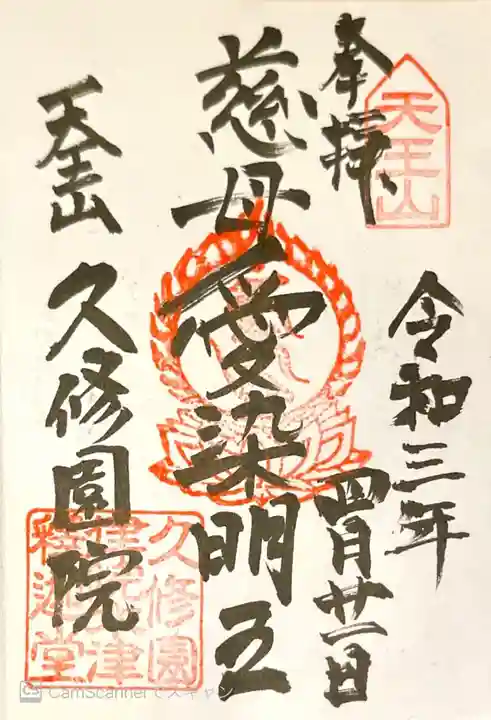 奉拝
天王山
令和三年
四月廿一日
慈母愛染明王
天王山
久修園院
久修園
木津
釋迦堂
CamScannerでスキャン